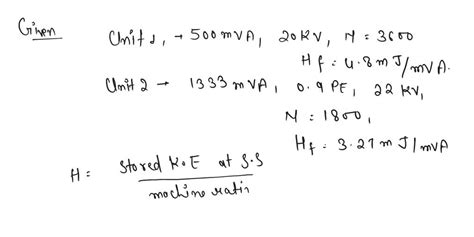 Given
Unit 1, → 500 mVA, 20KV, N = 3600
Hf = 4.8 mJ/mVA.
Unit 2 → 1333 mVA, 0.9 PF, 22 KV,
N = 1800,
Hf = 3.27 mJ/mVA
H = Stored K.E at S.S
machine ratin